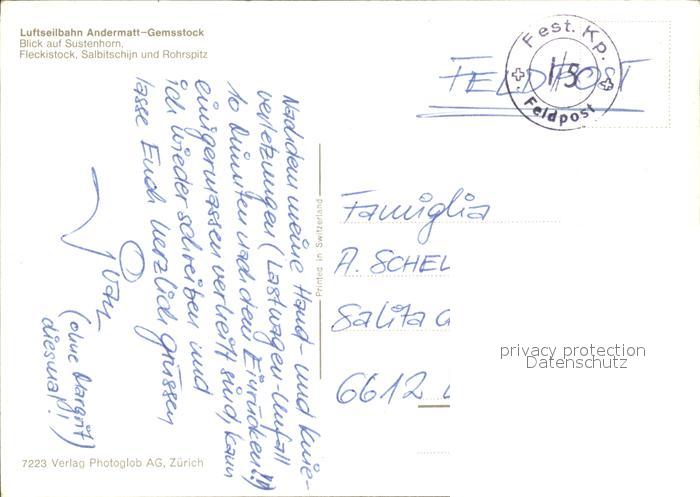 Luftseilbahn Andermatt–Gemsstock
Blick auf Sustenhorn,
Fleckistock, Salbitschijn und Rohrspitz
Fest. Kp.
II/5
Feldpost
FELDPOST
Nachdem meine Hand- und Knie-
verletzungen (Lastwagen-Unfall
10 Minuten nach dem Einrücken!!)
einigermassen verheilt sind, kann
ich wieder schreiben und
lasse Euch herzlich grüssen
Ivan
(ohne Margrit
diesmal!)
Printed in Switzerland
Famiglia
A. SCHEL
Salita
6612
privacy protection
Datenschutz
7223 Verlag Photoglob AG, Zürich